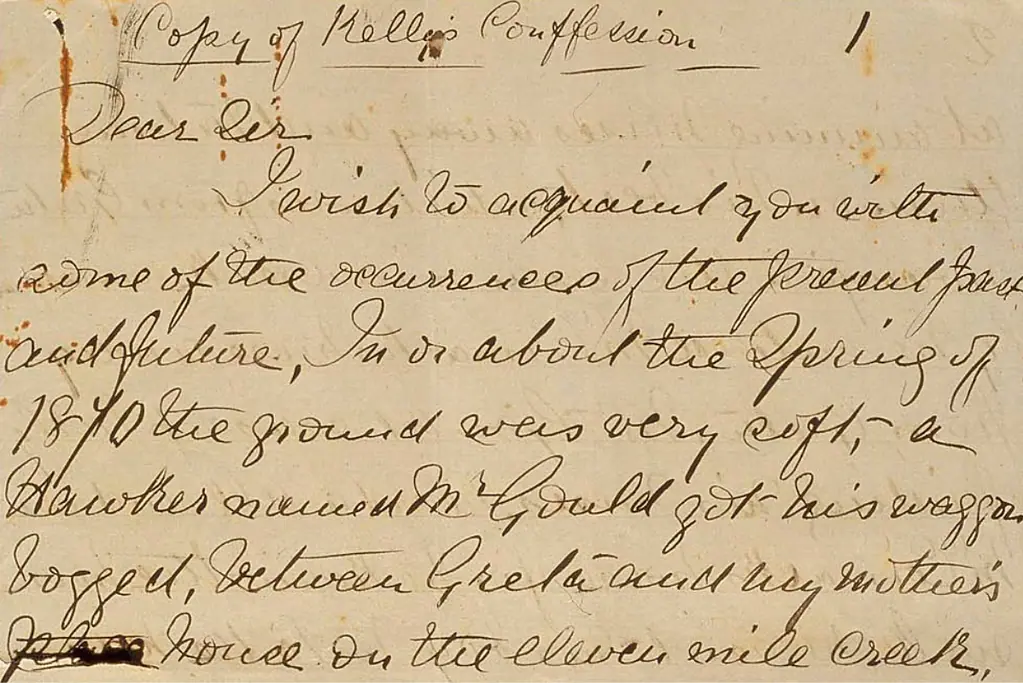 Copy of Kelly's Conffession 1
Dear Sir
I wish to acquaint you with
some of the occurrences of the present past
and future, In or about the Spring of
1870 the ground was very soft, a
Hawker named Mr Gould got his waggon
bogged, between Greta and my mother's
place house on the eleven mile creek,